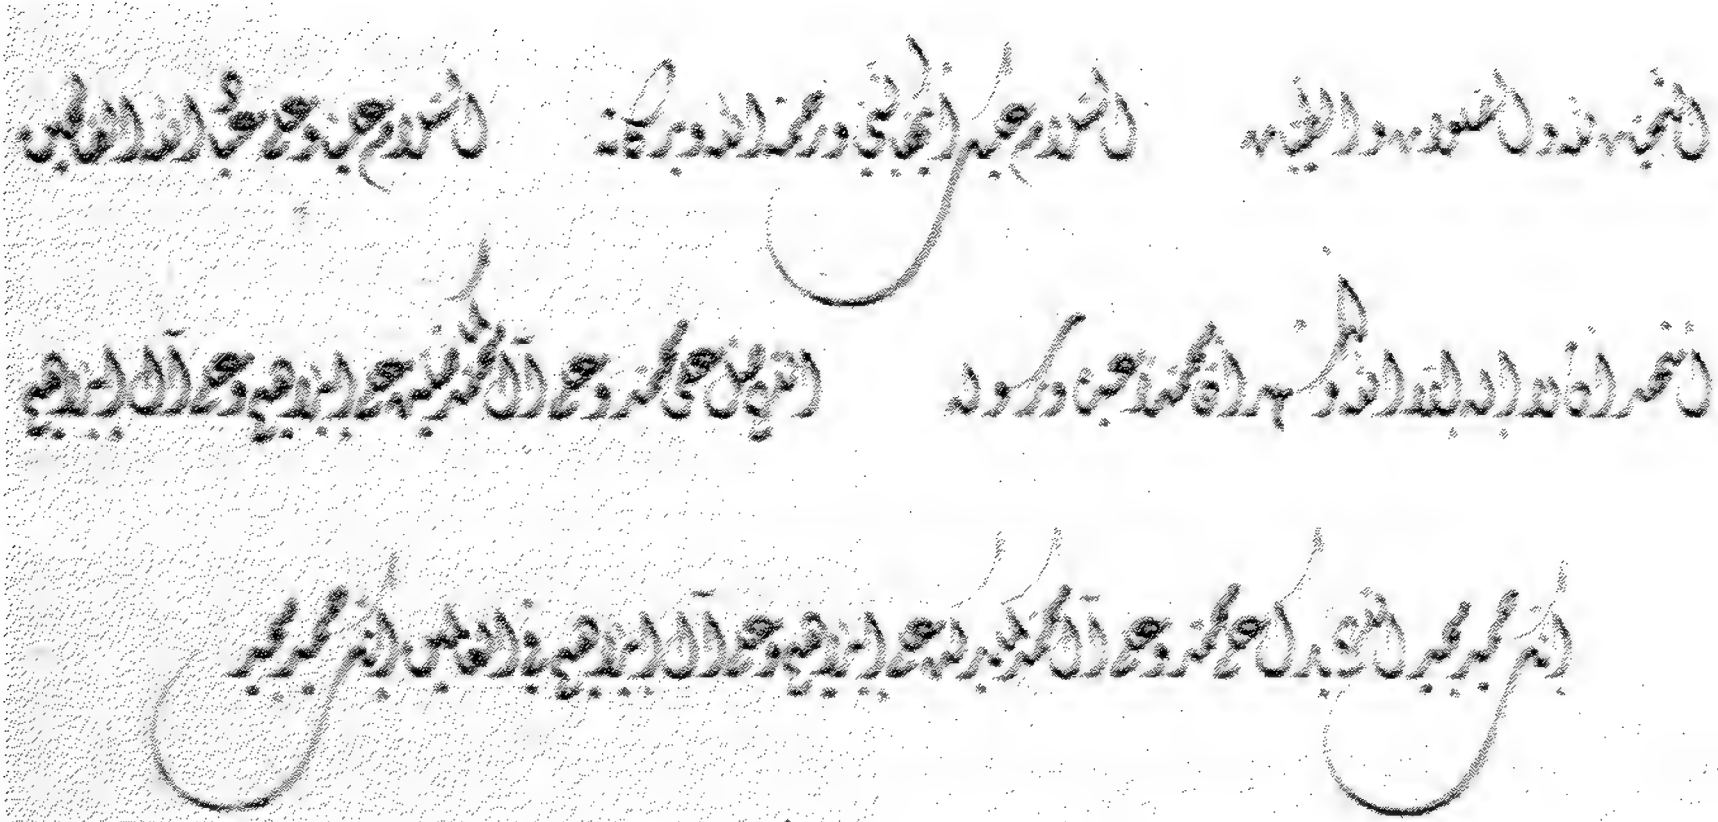 التحيات لله والصلوات والطيبات السلام عليك أيها النبي ورحمة الله وبركاته السلام علينا وعلى عباد الله الصالحين
أشهد أن لا إله إلا الله وأشهد أن محمدا عبده ورسوله اللهم صل على محمد وعلى آل محمد كما صليت على إبراهيم وعلى آل إبراهيم
إنك حميد مجيد اللهم بارك على محمد وعلى آل محمد كما باركت على إبراهيم وعلى آل إبراهيم في العالمين إنك حميد مجيد